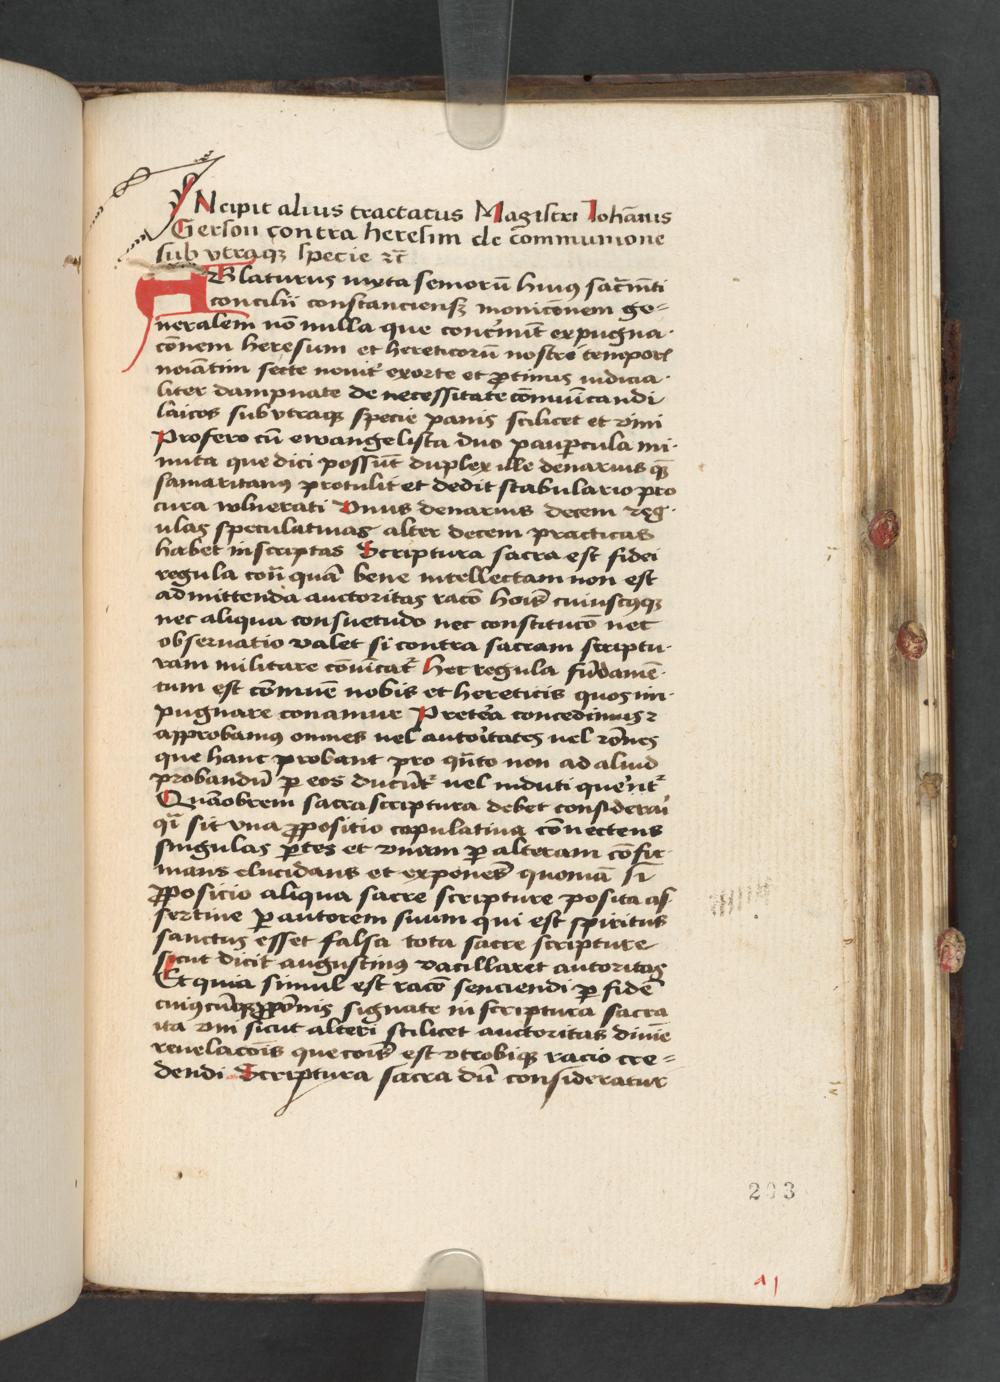 INcipit alius tractatus Magistri Iohānis
Gerson contra heresim de cōmunione
sub vtraqꝫ specie ⁊c̄
ABlaturus iuxta seniorū huiꝰ sac̄rm̄ti
concilii constanciensꝫ monic̄onem ge⸗
neralem nō nulla que conc̄rnūt expugna⸗
cōnem heresum et hereticorū nostri tempor̄
noīatim secte nouit̄ exorte et ꝓtinus iudicia⸗
liter dampnate de necessitate cōmūicandi
laicos sub vtraqꝫ specie panis scilicet et vini
Profero cū ewangelista duo paupꝑcula mi⸗
nuta que dici possūt duplex ille denarius q̄ꝫ
samaritanꝰ protulit et dedit stabulario pro
cura wlnerati Vnus denarius decem reg⸗
ulas speculatiuas alter decem practicas
habet inscriptas Scriptura sacra est fidei
regula con̄ quā bene intellectam non est
admittenda auctoritas racō hoīs cuiuscūqꝫ
nec aliqua consuetudo nec constitucō nec
obseruatio valet si contra sacram scriptu⸗
ram militare cōuīcat᷑ Hec regula fūdamē⸗
tum est cōmūe nobis et hereticis quos im⸗
pugnare conamur Pretēa concedimus ⁊
approbamꝰ omnes vel autoītates vel rōnes
que hanc probant pro qn̄to non ad aliud
probandū ꝑ eos ducūt᷑ vel induti querūt᷑
Quāobrem sacra scriptura debet considerari
qͣi sit vna ꝓpositio copulatiua connectens
singulas ꝑtes et vnam ꝑ alteram cōfir⸗
mans elucidans et exponens quoniā si
ꝓposicio aliqua sacre scripture posita as⸗
sertiue ꝑ autorem suum qui est spiritus
sanctus esset falsa tota sacre scripture
sicut dicit augustinꝰ vacillaret autoritas
Et quia simul est racō senciendi ꝑ fidē
cuiꝰcūqꝫ ꝓpōnis signate in scriptura sacra
ita vni sicut alteri scilicet auctoritas diuīe
reuelacōis que coīs est vtrobiqꝫ racio cre⸗
dendi Scriptura sacra dū consideratur
203